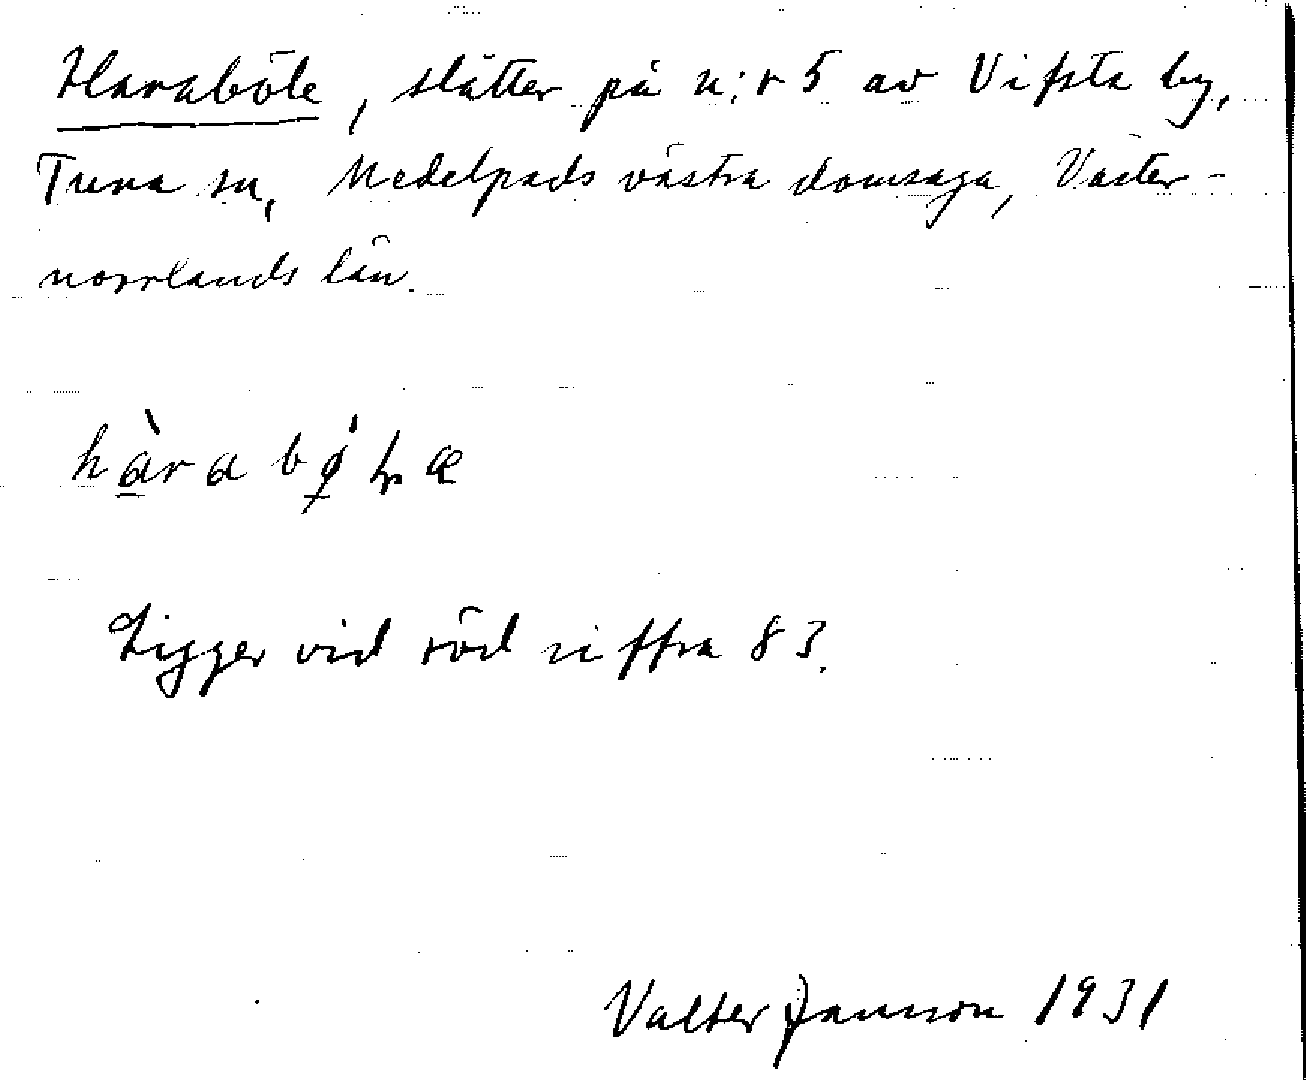 Haraböle, slåtter på n:r 5 av Vifsta by,
Tuna sn, Medelpads västra domsaga, Väster-
norrlands län.
Ligger vid röd siffra 83.
Valter Jansson 1931